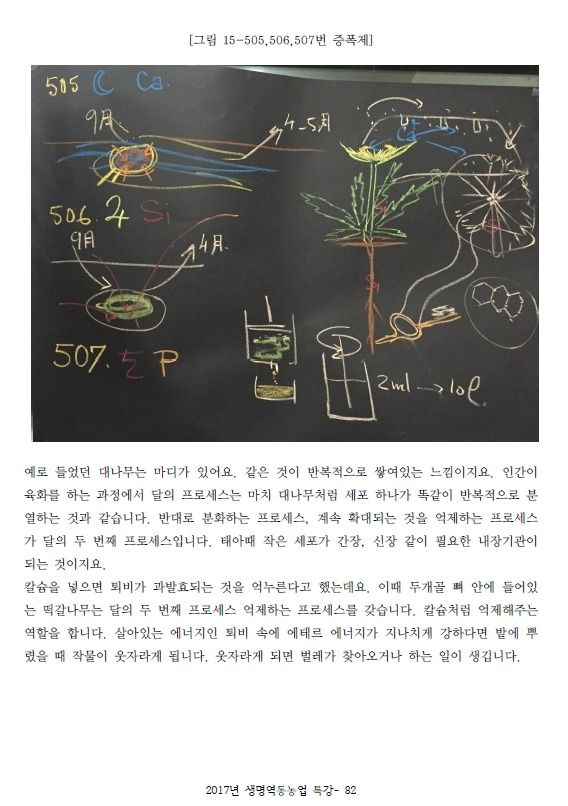 [그림 15-505,506,507번 증폭제]
505 ☾ Ca.
9月
4-5月
Ca
506. ♃ Si
Si
9月
4月.
Si
507. ♄ P
2ml → 10ℓ
예로 들었던 대나무는 마디가 있어요. 같은 것이 반복적으로 쌓여있는 느낌이지요. 인간이
육화를 하는 과정에서 달의 프로세스는 마치 대나무처럼 세포 하나가 똑같이 반복적으로 분
열하는 것과 같습니다. 반대로 분화하는 프로세스, 계속 확대되는 것을 억제하는 프로세스
가 달의 두 번째 프로세스입니다. 태아때 작은 세포가 간장, 신장 같이 필요한 내장기관이
되는 것이지요.
칼슘을 넣으면 퇴비가 과발효되는 것을 억누른다고 했는데요. 이때 두개골 뼈 안에 들어있
는 떡갈나무는 달의 두 번째 프로세스 억제하는 프로세스를 갖습니다. 칼슘처럼 억제해주는
역할을 합니다. 살아있는 에너지인 퇴비 속에 에테르 에너지가 지나치게 강하다면 밭에 뿌
렸을 때 작물이 웃자라게 됩니다. 웃자라게 되면 벌레가 찾아오거나 하는 일이 생깁니다.
2017년 생명역동농업 특강- 82